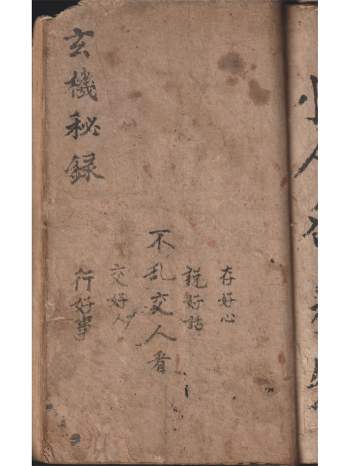 存好心
説好話
不乱交人看
交好人
行好事
玄機秘録